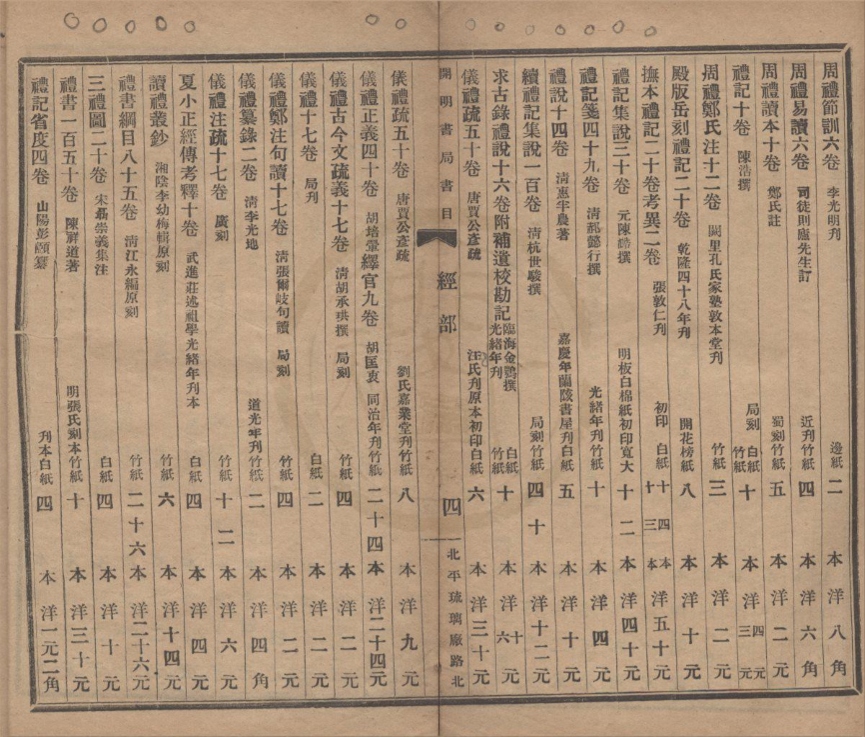 周禮節訓六卷 李光明刊 邊紙 二本 洋八角
周禮易讀六卷 司徒則廬先生訂 近刊竹紙 四本 洋六角
周禮讀本十卷 鄭氏註 蜀刻竹紙 五本 洋二元
禮記十卷 陳浩撰 局刻 白紙 竹紙 十本 洋 四元 三元
周禮鄭氏注十二卷 闕里孔氏家塾敦本堂刊 竹紙 三本 洋二元
殿版岳刻禮記二十卷 乾隆四十八年刊 開花榜紙 八本 洋十元
撫本禮記二十卷考異二卷 張敦仁刊 初印 白紙 竹紙 十四本 十三本 洋五十元
禮記集說三十卷 元陳澔撰 明板白棉紙初印寬大 十二本 洋四十元
禮記箋四十九卷 清郝懿行撰 光緒年刊竹紙 十本 洋四元
禮說十四卷 清惠半農著 嘉慶年蘭陔書屋刊白紙 五本 洋十元
續禮記集說一百卷 清杭世駿撰 局刻竹紙 四十本 洋十二元
求古錄禮說十六卷附補遺校勘記 臨海金鶚撰 光緒年刊 白紙 竹紙 十本 洋 十元 六元
儀禮疏五十卷 唐賈公彥疏 汪氏刋原本初印白紙 六本 洋三十元
開明書局書目 經部 四 北平琉璃廠路北
儀禮疏五十卷 唐賈公彥疏 劉氏嘉業堂刊竹紙 八本 洋九元
儀禮正義四十卷 胡培翬 繹官九卷 胡匡衷 同治年刊竹紙 二十四本 洋二十四元
儀禮古今文疏義十七卷 清胡承珙撰 局刻 竹紙 四本 洋二元
儀禮十七卷 局刊 白紙 二本 洋二元
儀禮鄭注句讀十七卷 清張爾岐句讀 局刻 竹紙 四本 洋二元
儀禮纂錄二卷 清李光地 道光年刊竹紙 二本 洋四角
儀禮注疏十七卷 廣刻 竹紙 十二本 洋六元
夏小正經傳考釋十卷 武進莊述祖學光緒年刊本 白紙 四本 洋四元
讀禮叢鈔 湘陰李幼梅輯原刻 竹紙 六本 洋十四元
禮書綱目八十五卷 清江永編原刻 竹紙 二十六本 洋二十六元
三禮圖二十卷 宋聶崇義集注 白紙 四本 洋十元
禮書一百五十卷 陳祥道著 明張氏刻本竹紙 十本 洋三十元
禮記省度四卷 山陽彭頤纂 刋本白紙 四本 洋一元二角